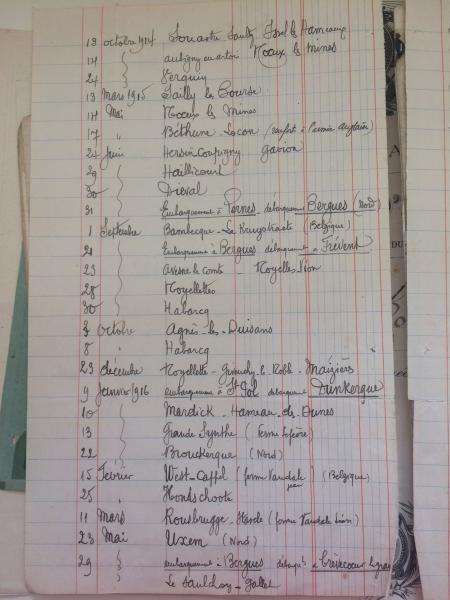 13 octobre 1914 Souastre Saulty Izel les Hameaux
14 " aubigny en artois Noeux les mines
24 " Verquin
13 Mars 1915 Sailly la Bourse
14 Mai Noeux les Mines
17 " Béthune-Locon (renfort à l'armée anglaise)
24 Juin Hersin-Coupigny Gavion
29 Haillicourt
30 Dieval
31 Embarquement à Pernes débarquement Bergues (Nord)
1 Septembre Bambecque - Le Kruystraete (Belgique)
21 Embarquement à Bergues débarquement à Frévent
23 avesne le Comte - Noyelles Vion
28 Noyellettes
30 Habarcq
3 Octobre Agnès-les-Duisans
8 " Habarcq
23 décembre Noyellette - Givenchy-le-Noble - Maizières
9 Janvier 1916 embarquement à St Pol débarquement Dunkerque
10 Mardick - Hameau-des-Dunes
13 Grande Synthe (ferme Lefèvre)
22 Brouckerque (Nord)
15 Février West-Cappel (ferme Vandale jean) (Belgique)
25 " Hondschoote
11 Mars Rousbrugge-Harole (ferme Vandale Léon)
23 Mai Uxem (Nord)
29 embarquement à Bergues débarqt à Crèvecoeur le grand
Le Saulchoy-Gallet
DU